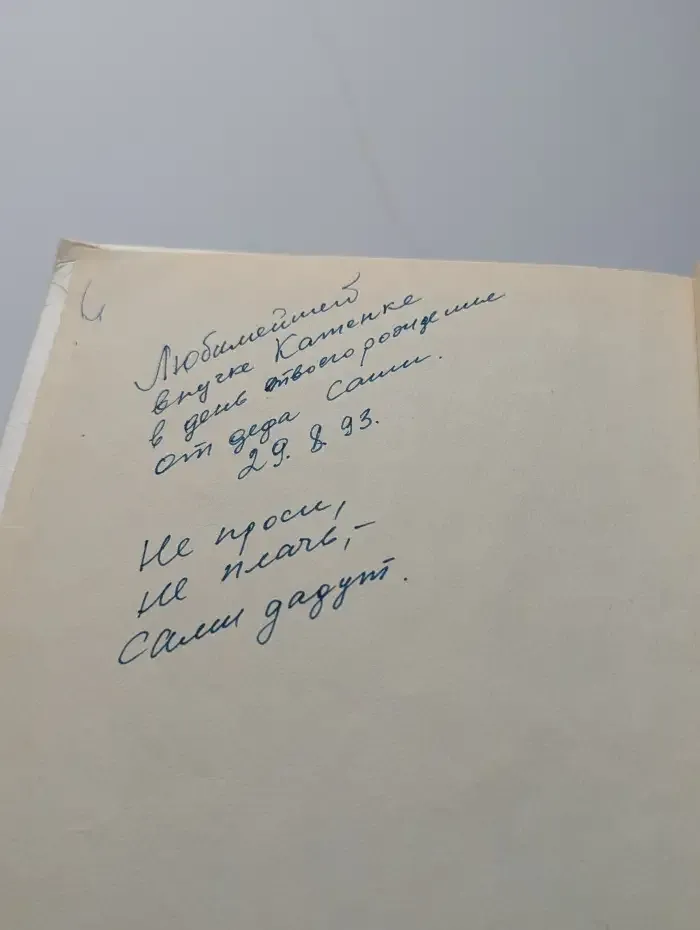 Любимейшей
внучке Катеньке
в день твоего рождение
от деда Саши.
29.8.93.
Не проси,
не плачь, –
сами дадут.